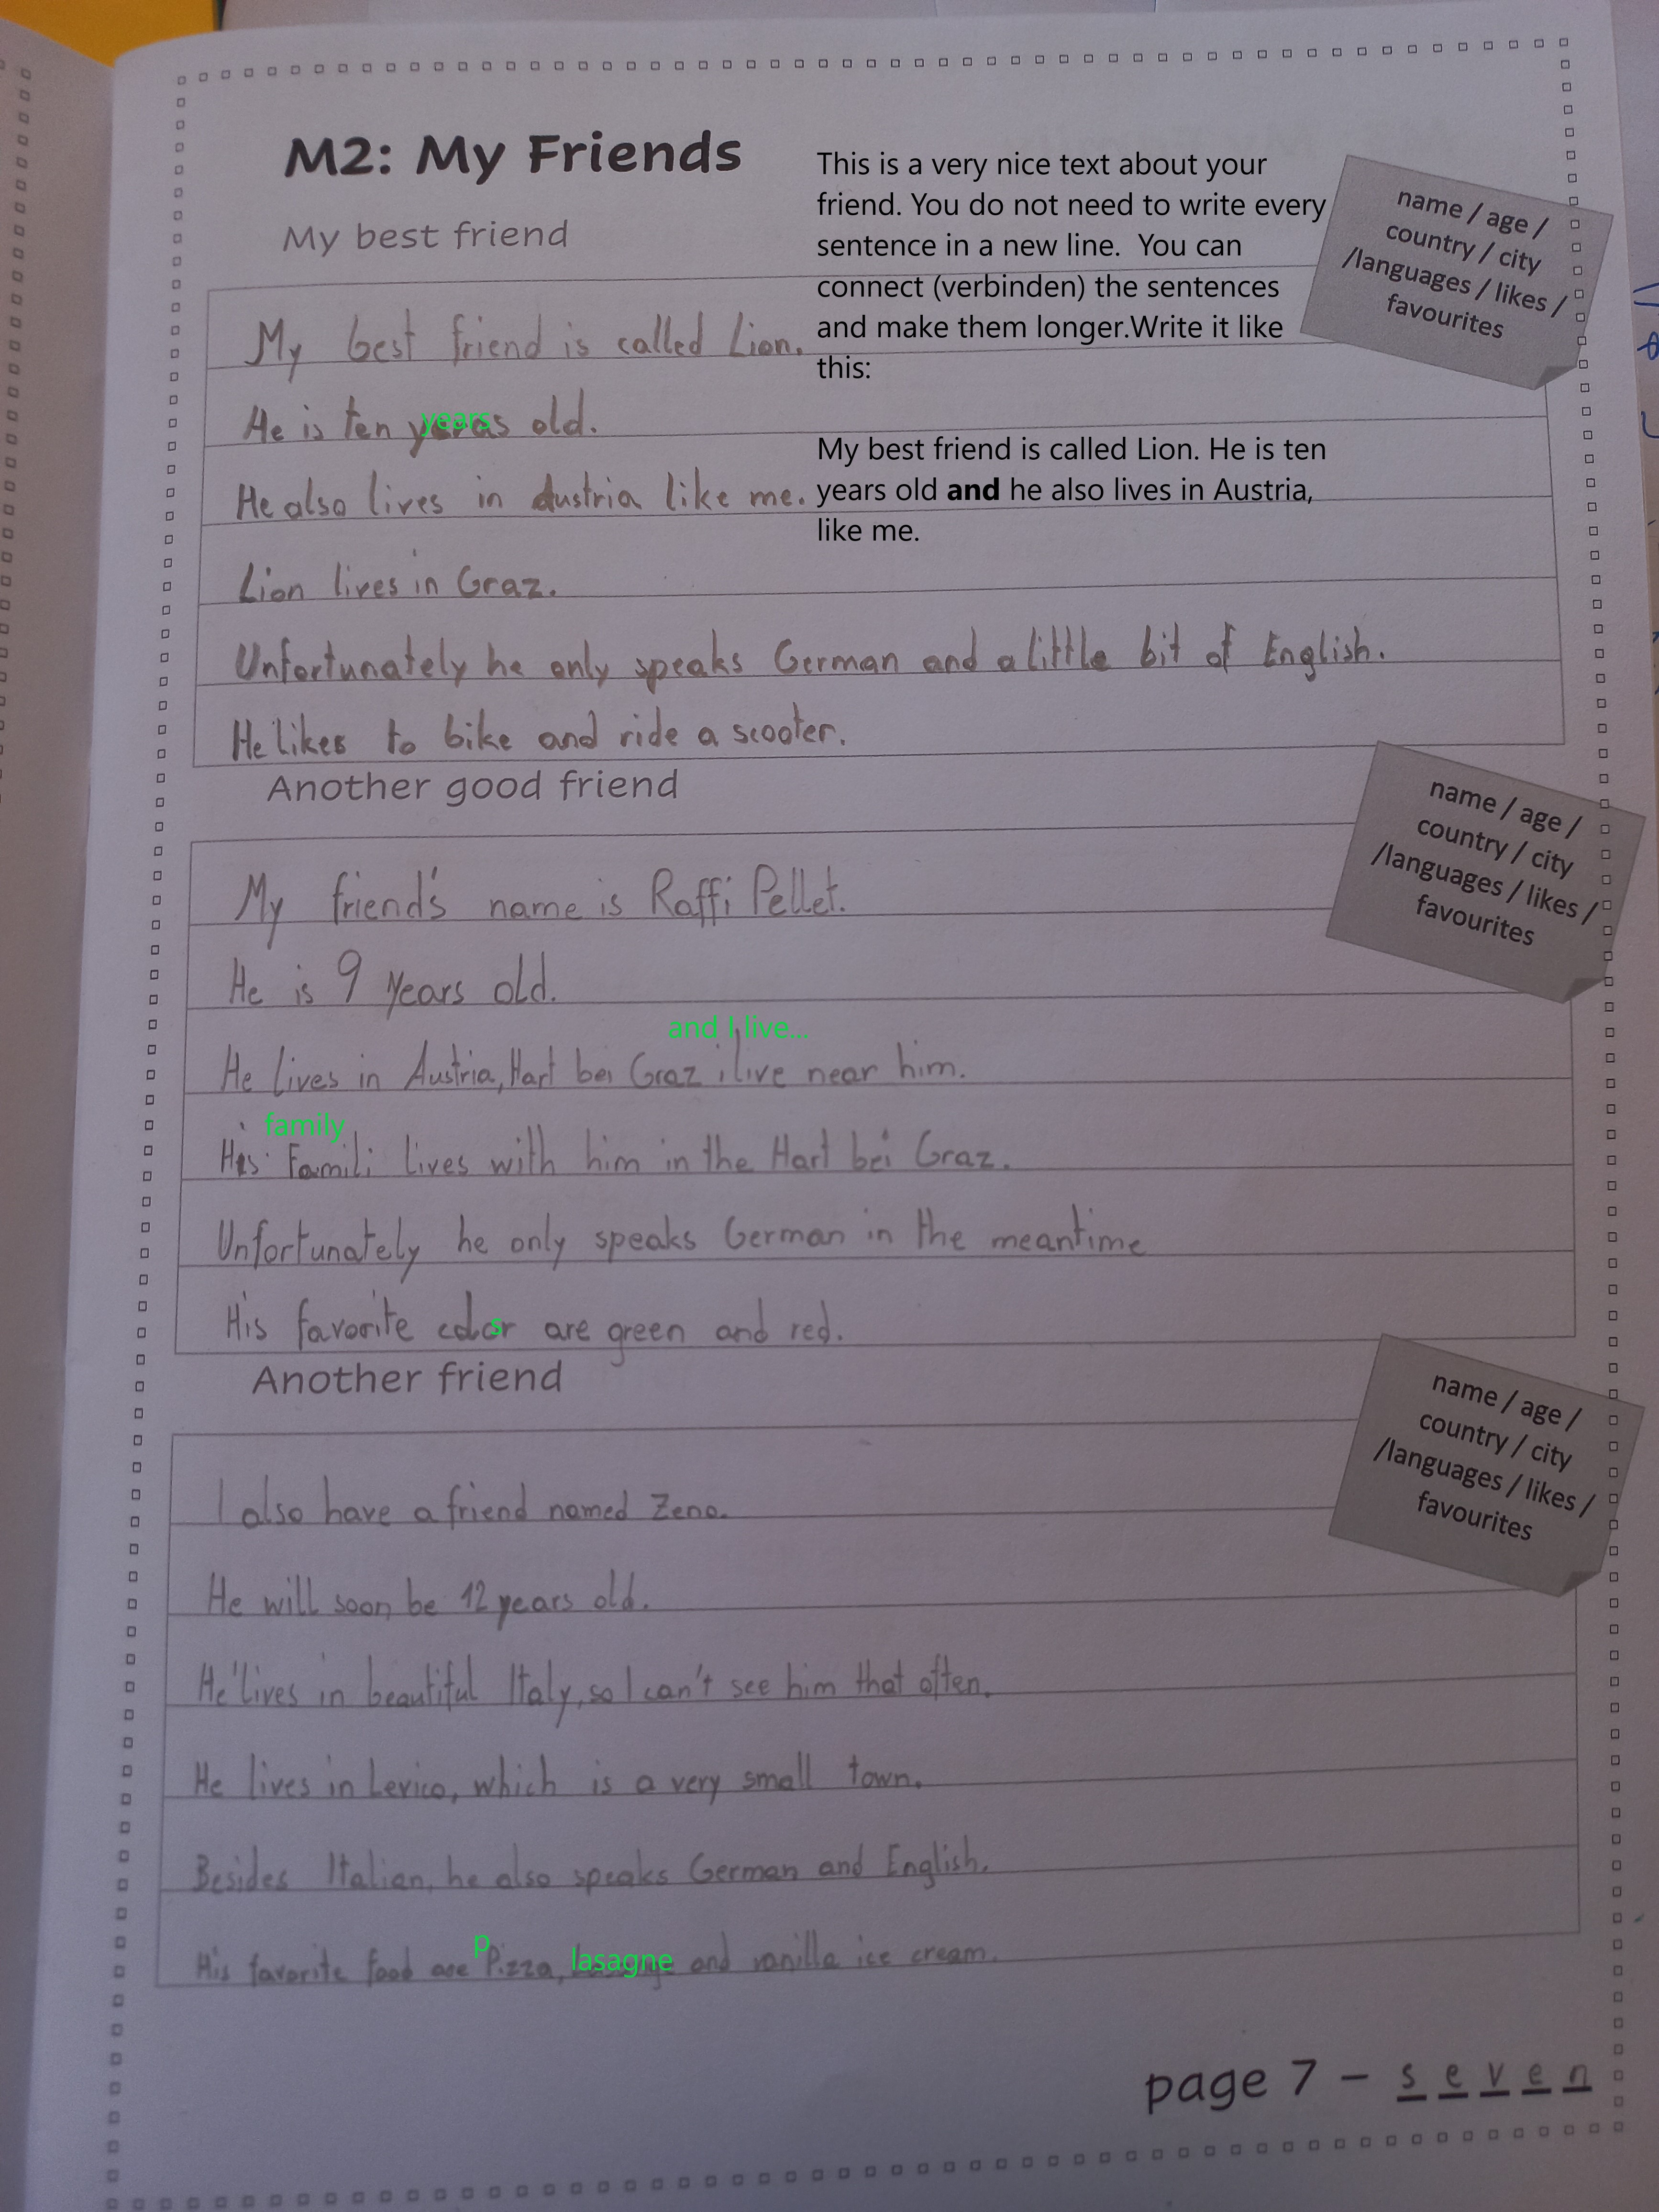 M2: My Friends
This is a very nice text about your
friend. You do not need to write every
sentence in a new line. You can
connect (verbinden) the sentences
and make them longer.Write it like
this:
My best friend is called Lion. He is ten
years old and he also lives in Austria,
like me.
name / age /
country / city
/languages / likes /
favourites
My best friend
My best friend is called Lion.
He is ten years old.
years
He also lives in Austria like me.
Lion lives in Graz.
Unfortunately he only speaks German and a little bit of English.
He likes to bike and ride a scooter.
Another good friend
name / age /
country / city
/languages / likes /
favourites
My friend's name is Raffi Pellet.
He is 9 years old.
and I live...
He lives in Austria, Hart bei Graz i live near him.
family
His Famili lives with him in the Hart bei Graz.
Unfortunately he only speaks German in the meantime
His favorite color are green and red.
s
Another friend
name / age /
country / city
/languages / likes /
favourites
I also have a friend named Zeno.
He will soon be 12 years old.
He lives in beautiful Italy, so I can't see him that often.
He lives in Levico, which is a very small town.
Besides Italian, he also speaks German and English.
p
His favorite food are Pizza, lasagne and vanilla ice cream.
page 7 - seven